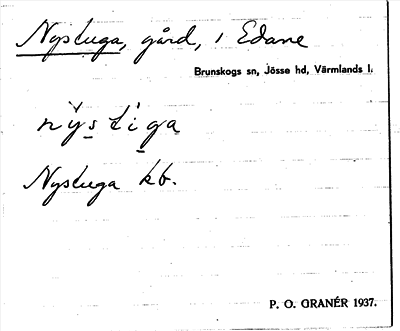 Nystuga, gård, i Edane
Brunskogs sn, Jösse hd, Värmlands l.
Nystuga kb.
P. O. GRANÉR 1937.